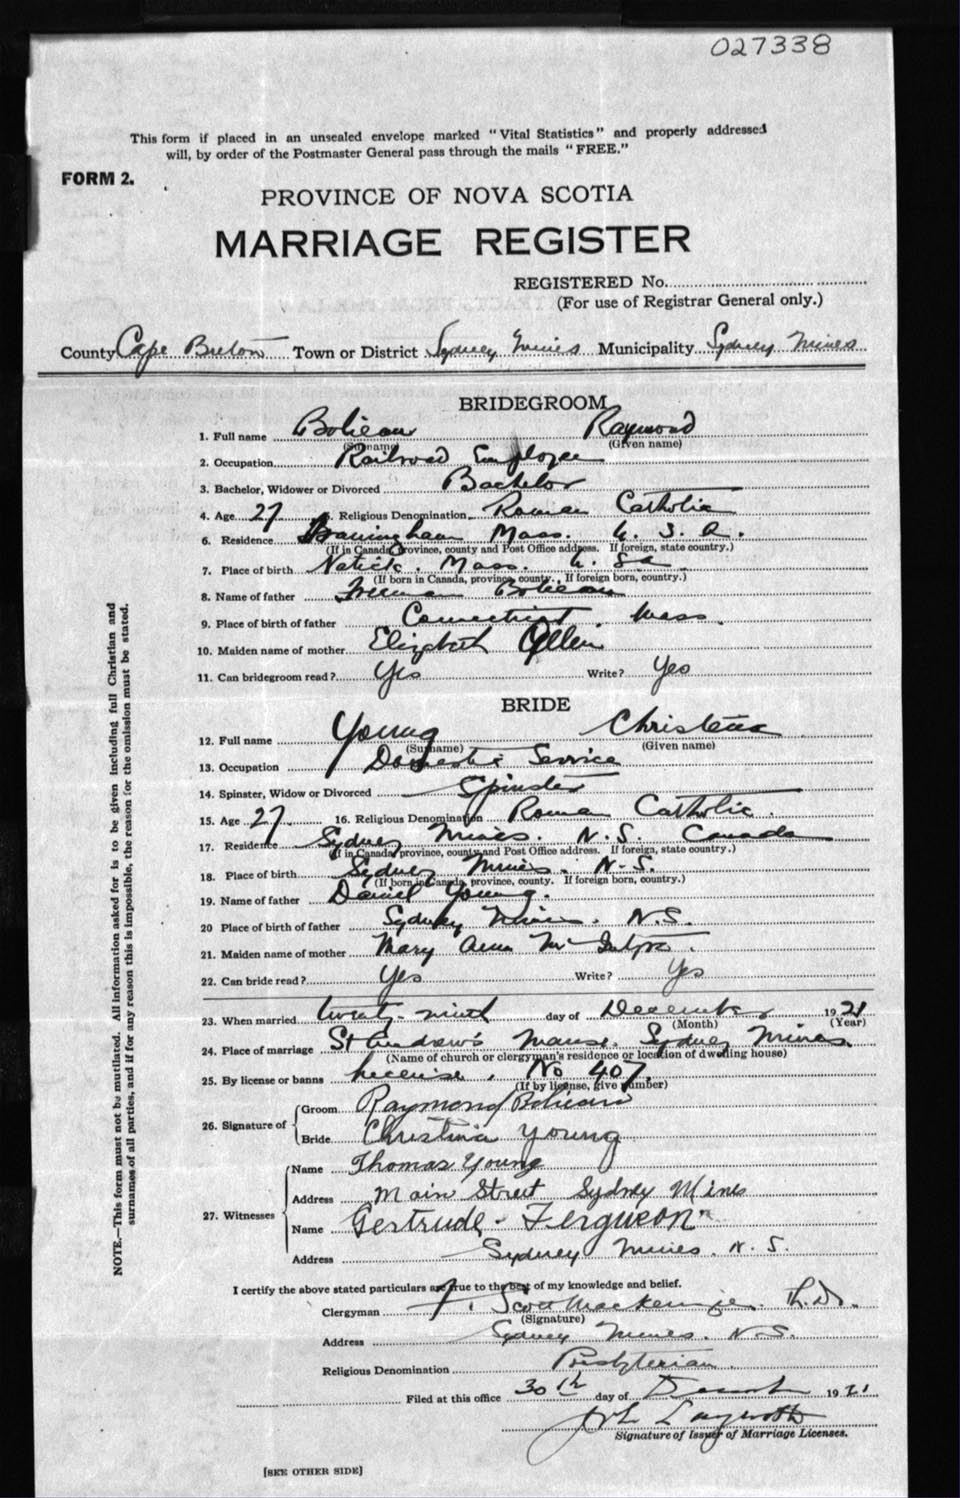 027338
This form if placed in an unsealed envelope marked "Vital Statistics" and properly addressed
will, by order of the Postmaster General pass through the mails "FREE."
FORM 2.
PROVINCE OF NOVA SCOTIA
MARRIAGE REGISTER
REGISTERED No.
(For use of Registrar General only.)
County Cape Breton Town or District Sydney Mines Municipality Sydney Mines
BRIDEGROOM
1. Full name Bolieau Raymond
(Surname) (Given name)
2. Occupation Railroad Employee
3. Bachelor, Widower or Divorced Bachelor
4. Age 27 Religious Denomination Roman Catholic
6. Residence Framingham Mass. U. S. A.
(If in Canada, province, county and Post Office address. If foreign, state country.)
7. Place of birth Natick, Mass. U. SA
(If born in Canada, province, county. If foreign born, country.)
8. Name of father Freeman Bolieau
9. Place of birth of father Connecticut, Mass.
10. Maiden name of mother Elizabeth
11. Can bridegroom read? Yes Write? Yes
BRIDE
12. Full name Young Christena
(Surname) (Given name)
13. Occupation Domestic Service
14. Spinster, Widow or Divorced Spinster
15. Age 27 16. Religious Denomination Roman Catholic.
17. Residence Sydney Mines. N. S. Canada
(If in Canada, province, county and Post Office address. If foreign, state country.)
18. Place of birth Sydney Mines. N-S.
(If born in Canada, province, county. If foreign born, country.)
19. Name of father Daniel Young.
20 Place of birth of father Sydney Mines. N.S.
21. Maiden name of mother Mary Ann
22. Can bride read? Yes Write? Yes
23. When married twenty-ninth day of December 1921
(Month) (Year)
24. Place of marriage St Andrew's Manse. Sydney Mines.
(Name of church or clergyman's residence or location of dwelling house)
25. By license or banns License, No 407.
(If by license, give number)
26. Signature of
Groom Raymond Bolieau
Bride Christina Young
27. Witnesses
Name Thomas Young
Address Main Street Sydney Mines
Name Gertrude - Ferguson
Address Sydney Mines. N. S.
I certify the above stated particulars are true to the best of my knowledge and belief.
Clergyman F. Scott Mackenzie. Th.D.
(Signature)
Address Sydney Mines. N.S.
Religious Denomination Presbyterian.
Filed at this office 30th day of December 1921
Signature of Issuer of Marriage Licenses.
[SEE OTHER SIDE]
NOTE.—This form must not be mutilated. All information asked for is to be given including full Christian and
surnames of all parties, and if for any reason this is impossible, the reason for the omission must be stated.